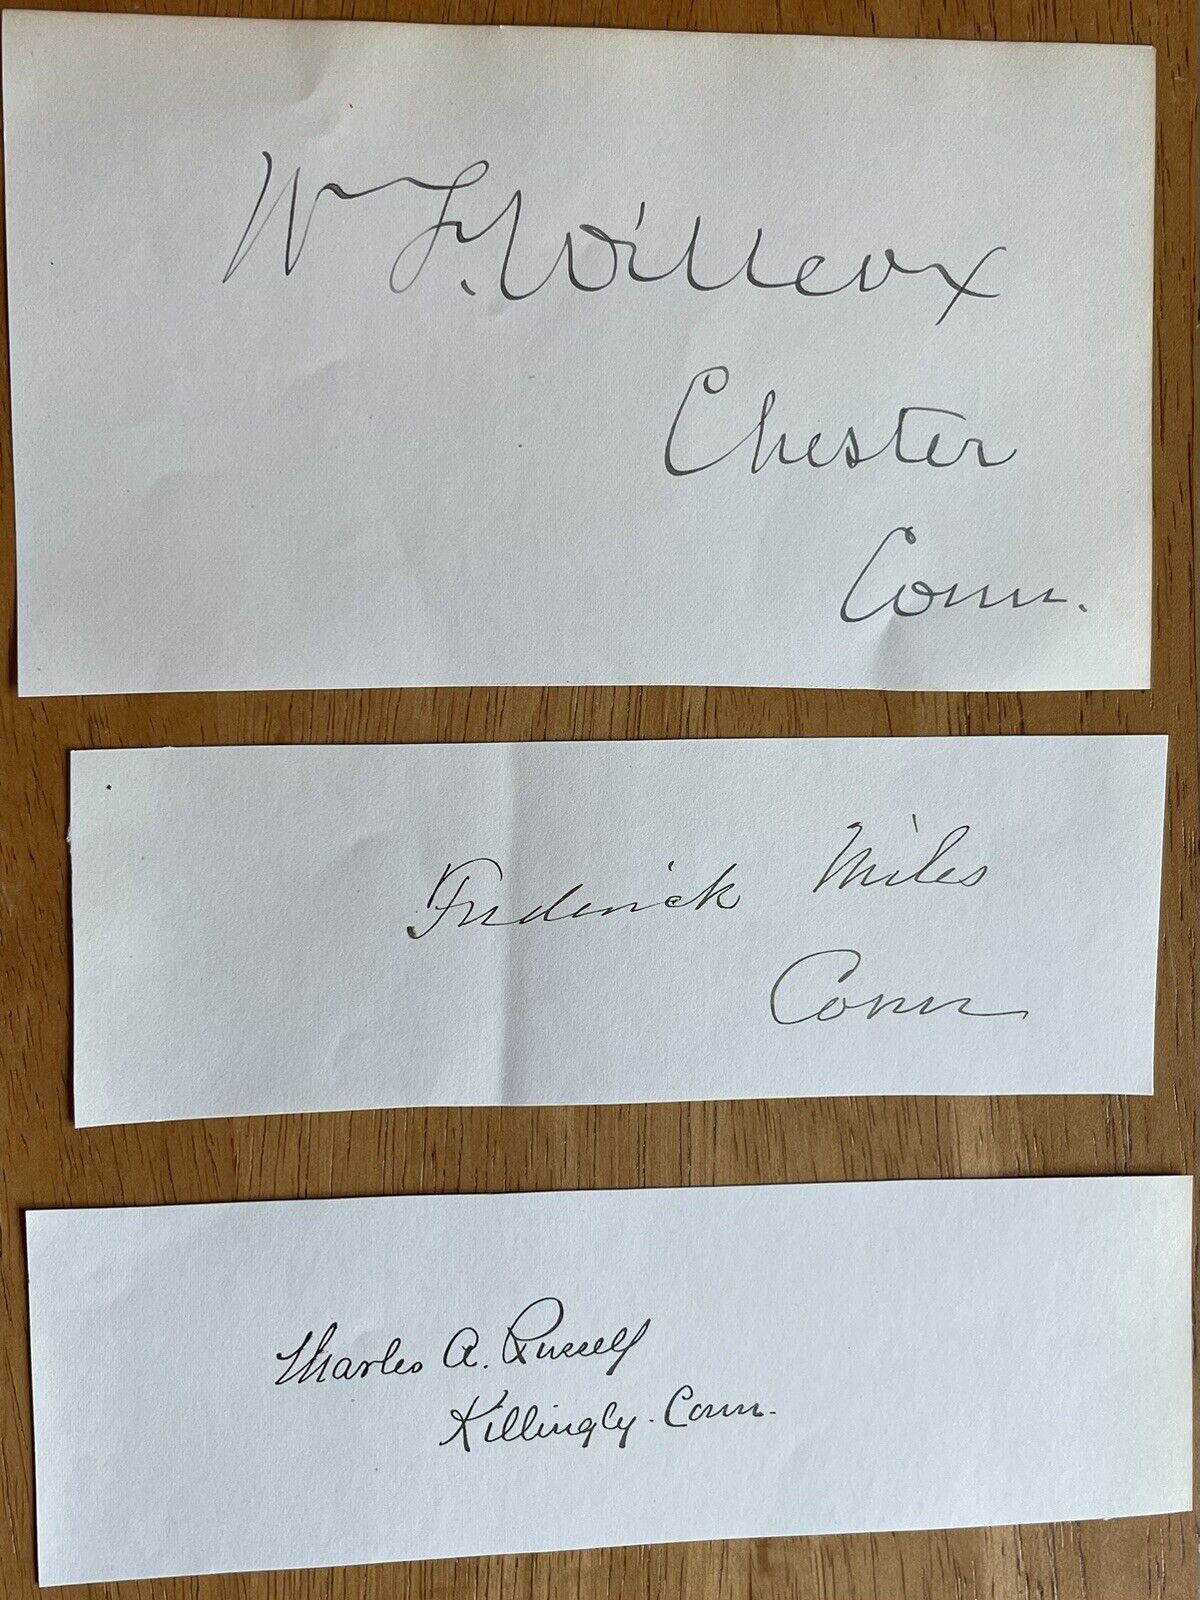 Wm F. Willcox
Chester
Conn.
Frederick Miles
Conn
Charles A. Russell
Killingly. Conn.